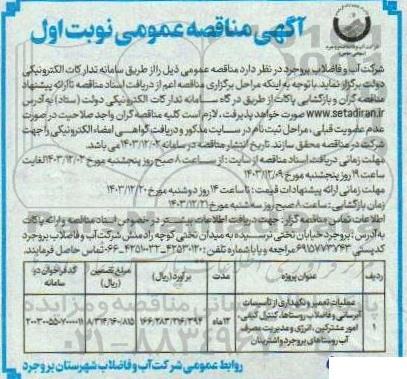 آگهی مناقصه عمومی نوبت اول
شرکت آب و فاضلاب بروجرد در نظر دارد مناقصه عمومی ذیل را از طریق سامانه تدارکات الکترونیکی
دولت برگزار نماید. با توجه به اینکه مراحل برگزاری مناقصه اعم از دریافت اسناد مناقصه تا ارائه پیشنهاد
مناقصه گران و بازگشایی پاکات از طریق درگاه سامانه تدارکات الکترونیکی دولت (ستاد) به آدرس
www.setadiran.ir صورت خواهد پذیرفت، لازم است کلیه مناقصه گران واجد صلاحیت در صورت
عدم عضویت قبلی، مراحل ثبت نام در سایت مذکور و دریافت گواهی امضاء الکترونیکی را جهت
شرکت در مناقصه محقق سازند. تاریخ مناقصه در سامانه ۱۴۰۳/۱۲/۰۲ می باشد.
مهلت زمانی دریافت اسناد مناقصه از سایت: از ساعت ۸ صبح روز پنجشنبه مورخ ۱۴۰۳/۱۲/۰۲ لغایت
ساعت ۱۹ روز پنجشنبه مورخ ۱۴۰۳/۱۲/۰۹
مهلت زمانی ارائه پیشنهادات قیمت: تا ساعت ۱۴ روز دوشنبه مورخ ۱۴۰۳/۱۲/۲۰
زمان بازگشایی: ساعت ۸ صبح روز سه شنبه مورخ ۱۴۰۳/۱۲/۲۱
اطلاعات تماس مناقصه گزار: جهت دریافت اطلاعات بیشتر در خصوص اسناد مناقصه و ارائه پاکات
به آدرس: بروجرد خیابان تختی نرسیده به میدان تختی کوچه راد منش شرکت آب و فاضلاب بروجرد
کدپستی ۶۹۱۵۷۷۳۷۶۳ مراجعه و یا با شماره تلفن: ۴۲۵۳۰۱۲۰-۴۲۵۱۰۳۲-۰۶۶ تماس حاصل فرمایند.
ردیف عنوان پروژه مدت برآورد (ریال) مبلغ تضمین (ریال) کد فراخوان در سامانه
۱ عملیات تعمیر و نگهداری از تاسیسات
آبرسانی و فاضلاب روستاها، کنترل کیفی،
امور مشترکین، انرژی و مدیریت مصرف
آب روستاهای بروجرد و اشترینان
۱۲ ماه ۱۶۶/۲۸۳/۲۱۶/۲۹۴ ۸/۳۱۴/۱۶۰/۸۱۵ ۲۰۰۳۰۰۵۵۰۷۰۰۰۰۱۱
روابط عمومی شرکت آب و فاضلاب شهرستان بروجرد